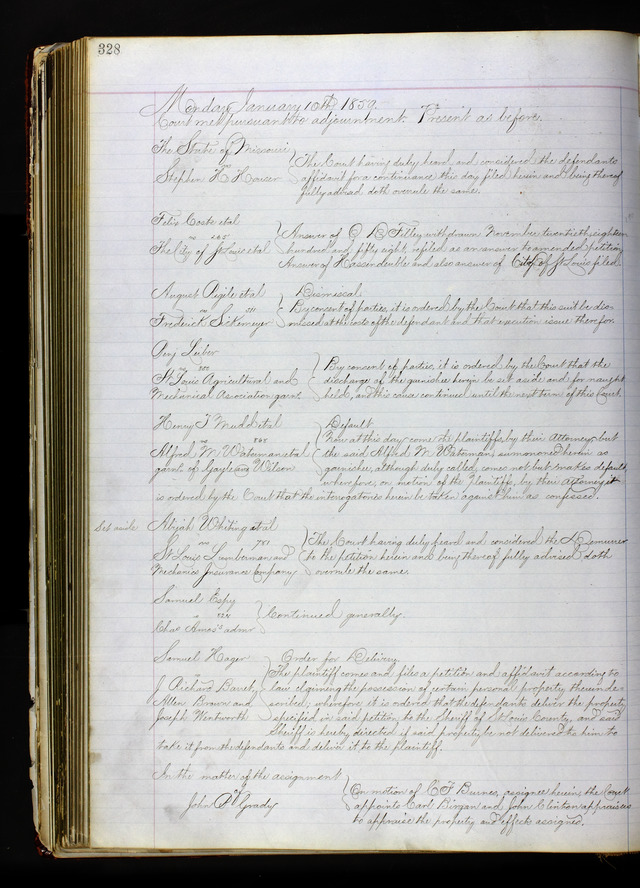 328
Monday January 10th 1859.
Court met pursuant to adjournment. Present as before.
The State of Missouri
vs
Stephen H Houser
The Court having duly heard and considered the defendants
affidavit for a continuance this day filed herein and being thereof
fully advised doth overrule the same.
Felix Coste et al
vs
The City of St Louis et al
Answer of O D Filley withdrawn November twentyth eighteen
hundred and fifty eight, refiled as an answer to amended petition
Answer of Hassendeubel and also answer of City of St Louis filed
August et al
vs
Frederick Sikemeyer
Dismissal
By consent of parties, it is ordered by the Court that this suit be dis-
missed at the costs of the defendant and that execution issue therefor.
Benj
vs
St Louis Agricultural and
Mechanical Asociation garn.
By consent of parties it is ordered by the Court that the
discharge of the garnishee herein be set aside and for naught
held, and this cause continued until the next term of this Court.
Henry T Mudd et al
vs
Alfred M Waterman et al
garnt of Gayle and Wilson
Default
Now at this day come the plaintiffs by their Attorney, but
the said Alfred M Waterman, summoned herein as
garnishee, although duly called, comes not but makes default,
wherefore, on motion of the Plaintiffs, by their Attorney it
is ordered by the Court that the interrogatories herein be taken against him as confessed.
Set aside
Abijah Whiting et al
vs 781
St Louis Lumberman and
Mechanics Insurance Company
The Court having duly heard and considered the Demurrer
to the petition herein and being thereof fully advised doth
overrule the same.
Samuel Espy
Chas Amos' admr
Continued generally.
Samuel Hager
vs
J Richard Barret,
Allen Brown and
Joseph Wentworth
Order for Delivery.
The plaintiff comes and files a petition and affidavit according to
law claiming the possession of certain personal property therein de-
scribed, wherefore, it is ordered that the defendants deliver the property
specified in said petition to the Sheriff of St Louis County, and said
Sheriff is hereby directed if said property be not delivered to him to
take it from the defendants and deliver it to the plaintiff.
In the matter of the assignment
of
John O'Grady
On motion of C F Burnes, assignee herein, the Court
appoints Carl and John Clinton appraisers
to appraise the property and effects assigned.